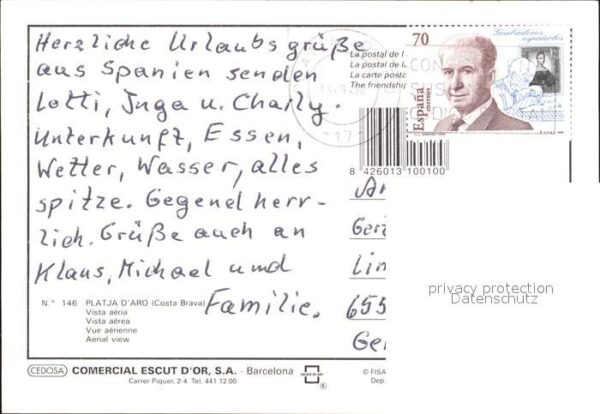 Herzliche Urlaubsgrüße
aus Spanien senden
Lotti, Inga u. Charly.
Unterkunft, Essen,
Wetter, Wasser, alles
spitze. Gegend herr-
lich. Grüße auch an
Klaus, Michael und
Familie.
N.° 146 PLATJA D'ARO (Costa Brava)
Vista aèria
Vista aérea
Vue aérienne
Aerial view
CEDOSA COMERCIAL ESCUT D'OR, S.A. - Barcelona
Carrer Piquer, 2-4 Tel. 441 12 00
®
© FISA
Dep.
La postal de l
La postal de la
La carte posta
The friendship
70
Grabadores españoles
España
correos
CON
17
8 426013 100100
Lin
655
Ge
privacy protection
Datenschutz